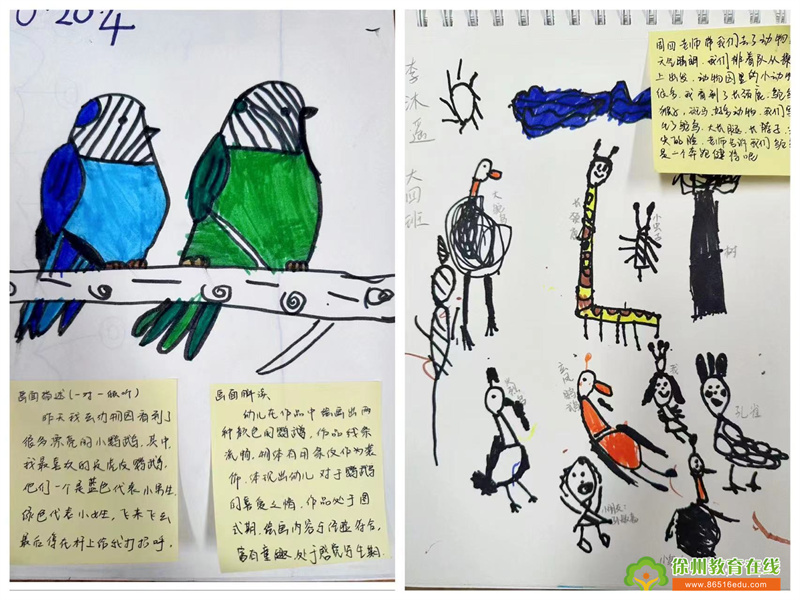 6.20.4
画面描述(一对一倾听)
昨天我去动物园看到了
很多漂亮的小鹦鹉,其中
我最喜欢的是虎皮鹦鹉,
他们一个是蓝色代表小男生
绿色代表小女生,飞来飞去
最后停在树上给我打招呼.
画面解读
幼儿在作品中绘画出两
种颜色的鹦鹉,作品线条
流畅,物体有用条纹作为装
饰,体现出幼儿对于鹦鹉
的喜爱之情,作品处于图
式期,绘画内容与传递符合,
富有童趣
李沐遥
大四班
老师带我们去了动物
天气晴朗,我们排着队从
上出发,动物园里的小动物
很多,我看到了长颈鹿,
猴子,
鸵鸟,大长腿,长脖子,
老师告诉我们
是一个奔跑健将呢
长颈鹿
树
孔雀
徐州教育在线
www.86516edu.com